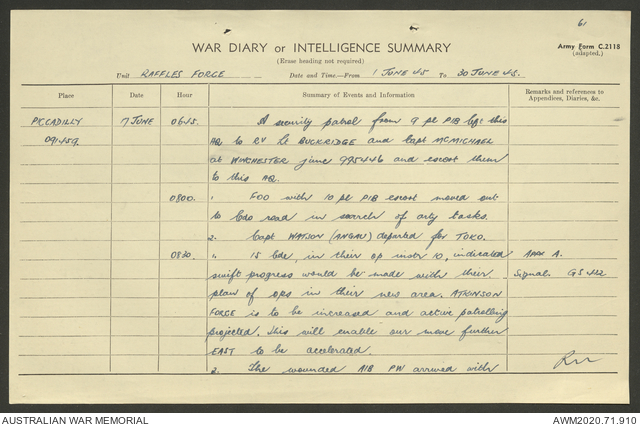 61
WAR DIARY or INTELLIGENCE SUMMARY
Army Form C.2118
(adapted.)
(Erase heading not required)
Unit RAFFLES FORCE Date and Time—From 1 JUNE 45 To 30 JUNE 45.
Place Date Hour Summary of Events and Information Remarks and references to
Appendices, Diaries, &c.
PICCADILLY 7 JUNE 0645. A security patrol from 9 pl PIB left this
091459 HQ to RV Lt BUCKRIDGE and Capt MCMICHAEL
at WINCHESTER junc 995446 and escort them
to this HQ.
0800. 1. FOO with 10 pl PIB escort moved out
to Cdo road in search of arty tasks.
2. Capt WATSON (ANGAU) departed for TOKO.
0830. 1. 15 Bde, in their op instr 10, indicated Appx A.
swift progress would be made with their Signal. GS 442
plan of ops in their new area. ATKINSON
FORCE is to be increased and active patrolling
projected. This will enable our move further
EAST to be accelerated.
2. The wounded AIB PW arrived with
AUSTRALIAN WAR MEMORIAL AWM2020.71.910